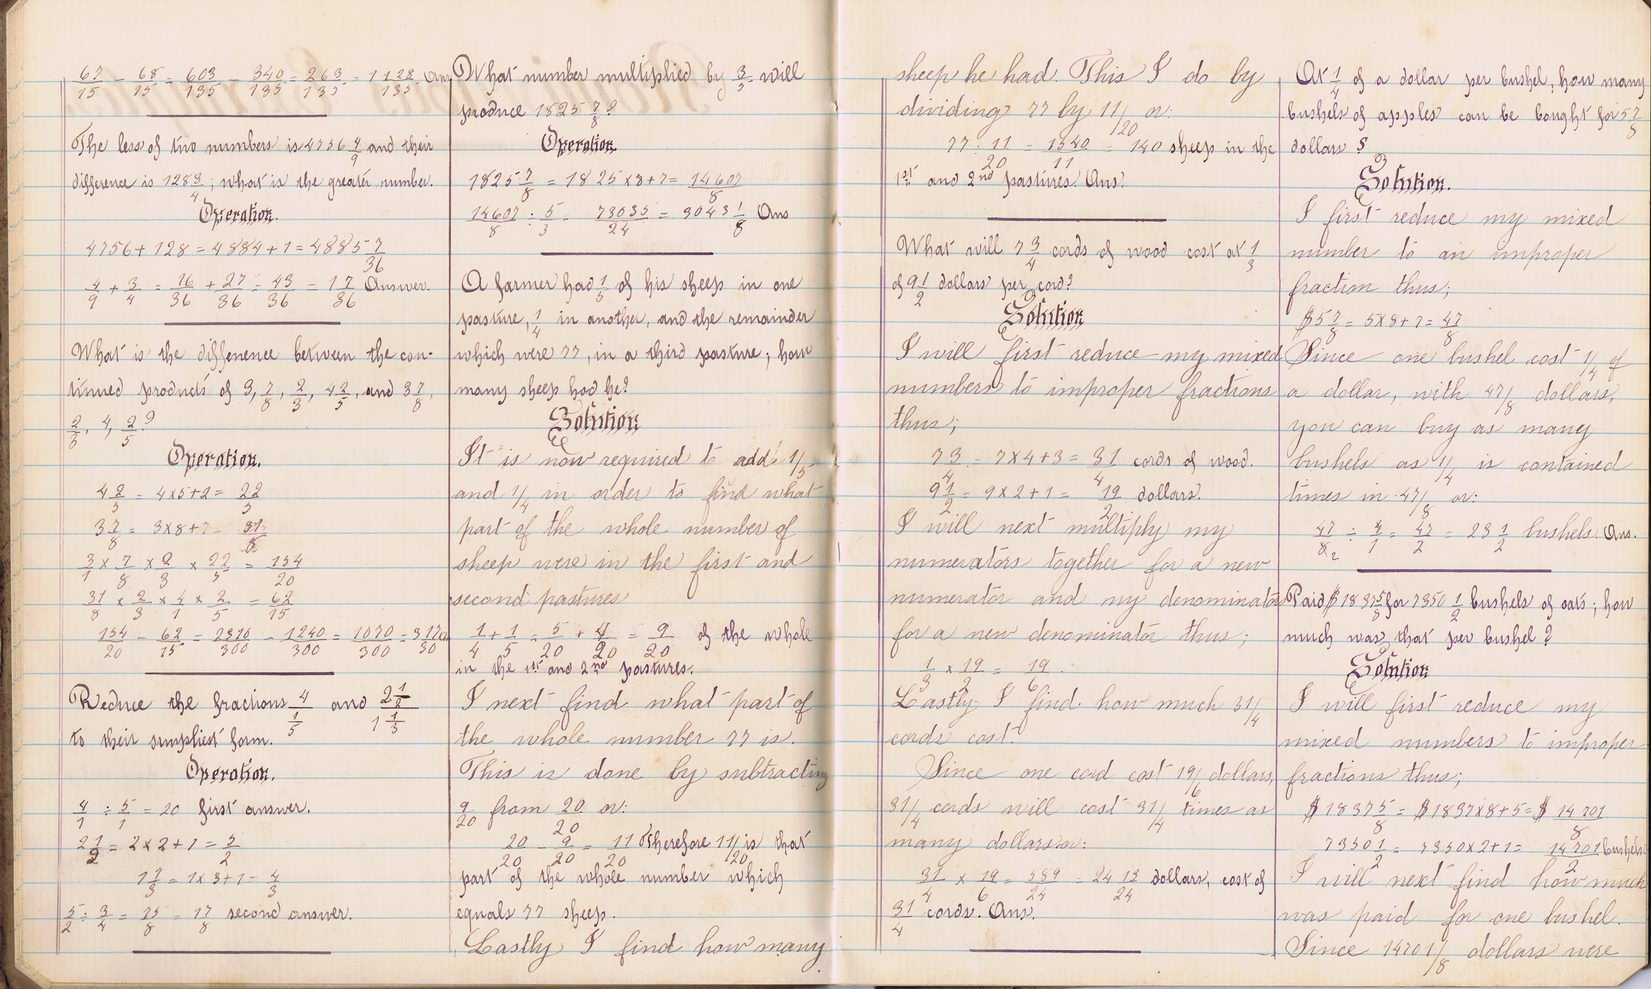 67/15 - 68/15 = 603/135 - 340/135 = 263/135 = 1 128/135. Ans
The less of two numbers is 4756 4/9 and their
difference is 128 3/4; what is the greater number.
Operation.
4756 + 128 = 4884 + 1 = 4885 7/36
4/9 + 3/4 = 16/36 + 27/36 = 43/36 = 1 7/36 Answer.
What is the difference between the con-
tinued products of 3, 7/8, 2/3, 4 2/5, and 3 7/8,
2/3, 4, 2/5?
Operation.
4 2/5 = 4x5+2 = 22/5
3 7/8 = 3x8+7 = 31/8
3/1 x 7/8 x 2/3 x 22/5 = 154/20
31/8 x 2/3 x 4/1 x 2/5 = 62/15
154/20 - 62/15 = 2310/300 - 1240/300 = 1070/300 = 3 17/30
Reduce the fractions 4/(1/5) and (2 1/2)/(1 1/3)
to their simpliest form.
Operation.
4/1 ÷ 5/1 = 20 first answer.
2 1/2 = 2x2+1 = 5/2
1 1/3 = 1x3+1 = 4/3
5/2 ÷ 3/4 = 15/8 = 1 7/8 second answer.
What number multiplied by 3/5 will
produce 1825 7/8?
Operation.
1825 7/8 = 1825x8+7 = 14607/8
14607/8 ÷ 5/3 = 73035/24 = 3043 1/8 Ans
A farmer had 1/5 of his sheep in one
pasture, 1/4 in another, and the remainder
which were 77, in a third pasture; how
many sheep had he?
Solution
It is now required to add 1/5
and 1/4 in order to find what
part of the whole number of
sheep were in the first and
second pastures
1/4 + 1/5 = 5/20 + 4/20 = 9/20 of the whole
in the 1st and 2nd pastures.
I next find what part of
the whole number 77 is.
This is done by subtracting
9/20 from 20/20 or:
20/20 - 9/20 = 11/20 Therefore 11/20 is that
part of the whole number which
equals 77 sheep.
Lastly I find how many
sheep he had. This I do by
dividing 77 by 11/20 or:
77 ÷ 11/20 = 1540/11 = 140 sheep in the
1st and 2nd pastures. Ans.
What will 7 3/4 cords of wood cost at 1/3
of 9 1/2 dollars per cord?
Solution
I will first reduce my mixed
numbers to improper fractions
thus;
7 3/4 = 7x4+3 = 31/4 cords of wood.
9 1/2 = 9x2+1 = 19/2 dollars.
I will next multiply my
numerators together for a new
numerator and my denominators
for a new denominator thus;
1/3 x 19/2 = 19/6.
Lastly I find how much 31/4
cords cost.
Since one cord cost 19/6 dollars,
31/4 cords will cost 31/4 times as
many dollars or:
31/4 x 19/6 = 589/24 = 24 13/24 dollars, cost of
31/4 cords. Ans.
At 1/4 of a dollar per bushel, how many
bushels of apples can be bought for 5 7/8
dollars?
Solution.
I first reduce my mixed
number to an improper
fraction thus;
$5 7/8 = 5x8+7 = 47/8
Since one bushel cost 1/4 of
a dollar, with 47/8 dollars,
you can buy as many
bushels as 1/4 is contained
times in 47/8 or:
47/8 ÷ 4/1 = 47/2 = 23 1/2 bushels. Ans.
Paid $1837 5/8 for 7350 1/2 bushels of oats; how
much was that per bushel?
Solution
I will first reduce my
mixed numbers to improper
fractions thus;
$1837 5/8 = $1837x8+5 = $14701/8
7350 1/2 = 7350x2+1 = 14701/2 bushels.
I will next find how much
was paid for one bushel.
Since 14701/8 dollars were